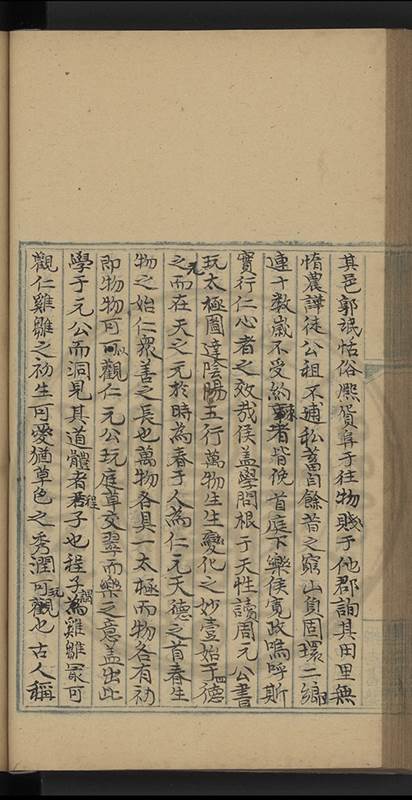 其邑郭氓恬俗熈貨阜于往物賤于他郡詢其田里無
惰農譁徒公租不逋私蓄自餘昔之窮山負固環二鄉
連十數歲不受約束者皆俛首庭下樂侯寬政嗚呼斯
實行仁心者之效哉侯盖學問根于天性讀周元公書
玩太極圖達陰陽五行萬物生生變化之妙壹始于四德
之元而在天之元於時為春于人為仁元天德之首春生
物之始仁衆善之長也萬物各具一太極而物各有初
即物物可以觀仁元公玩庭草交翠而樂之意盖出此
學于元公而洞見其道體者程子也程子謂雞雛㝡可
觀仁雞雛之初生可愛猶草色之秀潤可玩也古人稱